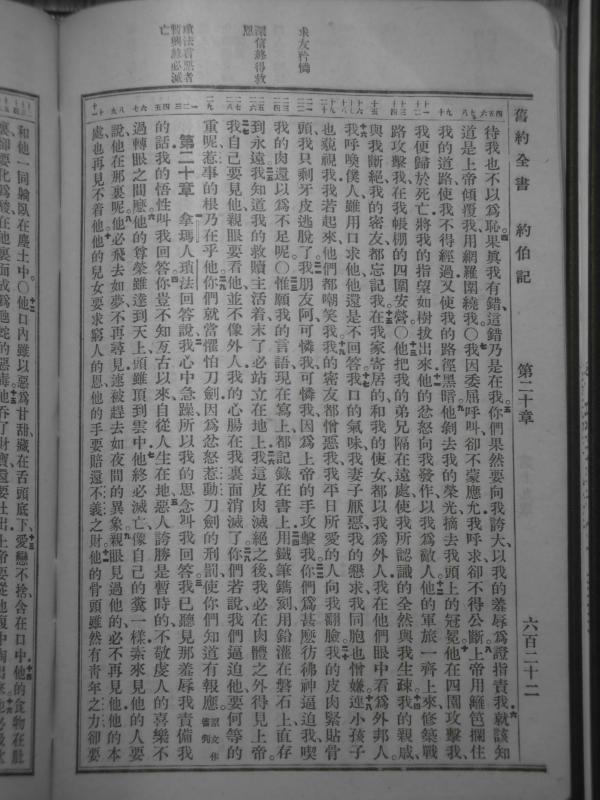 舊約全書 約伯記 第二十章 六百二十二
求友矜憐
深信終得救
恩
瑣法言惡者
暫興終必滅
亡
待我也不以爲恥果眞我有錯這錯乃是在我你們果然要向我誇大以我的羞辱爲證指責我就該知
道是上帝傾覆我用網羅圍繞我〇我因委屈呼叫卻不蒙應允我呼求卻不得公斷上帝用籬笆攔住
我的道路使我不得經過又使我的路徑黑暗他剝去我的榮光摘去我頭上的冠冕他在四圍攻擊我
我便歸於死亡將我的指望如樹拔出來他的忿怒向我發作以我爲敵人他的軍旅一齊上來修築戰
路攻擊我在我帳棚的四圍安營〇他把我的弟兄隔在遠處使我所認識的全然與我生疎我的親戚
與我斷絕我的密友都忘記我在我家寄居的和我的使女都以我爲外人我在他們眼中看爲外邦人
我呼喚僕人雖用口求他他還是不回答我口的氣味我妻子厭惡我的懇求我同胞也憎嫌連小孩子
也藐視我我若起來他們都嘲笑我我的密友都憎惡我我平日所愛的人向我翻臉我的皮肉緊貼骨
頭我只剩牙皮逃脫了我朋友阿可憐我可憐我因爲上帝的手攻擊我你們爲甚麼彷彿神逼迫我喫
我的肉還以爲不足呢〇惟願我的言語現在寫上都記錄在書上用鐵筆鐫刻用鉛灌在磐石上直存
到永遠我知道我的救贖主活着末了必站立在地上我這皮肉滅絕之後我必在肉體之外得見上帝
我自己要見他親眼要看他並不像外人我的心腸在我裏面消滅了你們若說我們逼迫他要何等的
重呢惹事的根乃在乎他你們就當懼怕刀劍因爲忿怒惹動刀劍的刑罰使你們知道有報應原文作審判
第二十章 拿瑪人瑣法回答說我心中急躁所以我的思念叫我回答我已聽見那羞辱我責備我
的話我的悟性叫我回答你豈不知亙古以來自從人生在地惡人誇勝是暫時的不敬虔人的喜樂不
過轉眼之間麽他的尊榮雖達到天上頭雖頂到雲中他終必滅亡像自己的糞一樣素來見他的人要
說他在那裏呢他必飛去如夢不再尋見速被趕去如夜間的異象親眼見過他的必不再見他他的本
處也再見不着他他的兒女要求窮人的恩他的手要賠還不義之財他的骨頭雖然有靑年之力卻要
和他一同躺臥在塵土中〇他口內雖以惡爲甘甜藏在舌頭底下愛戀不捨含在口中他的食物在肚